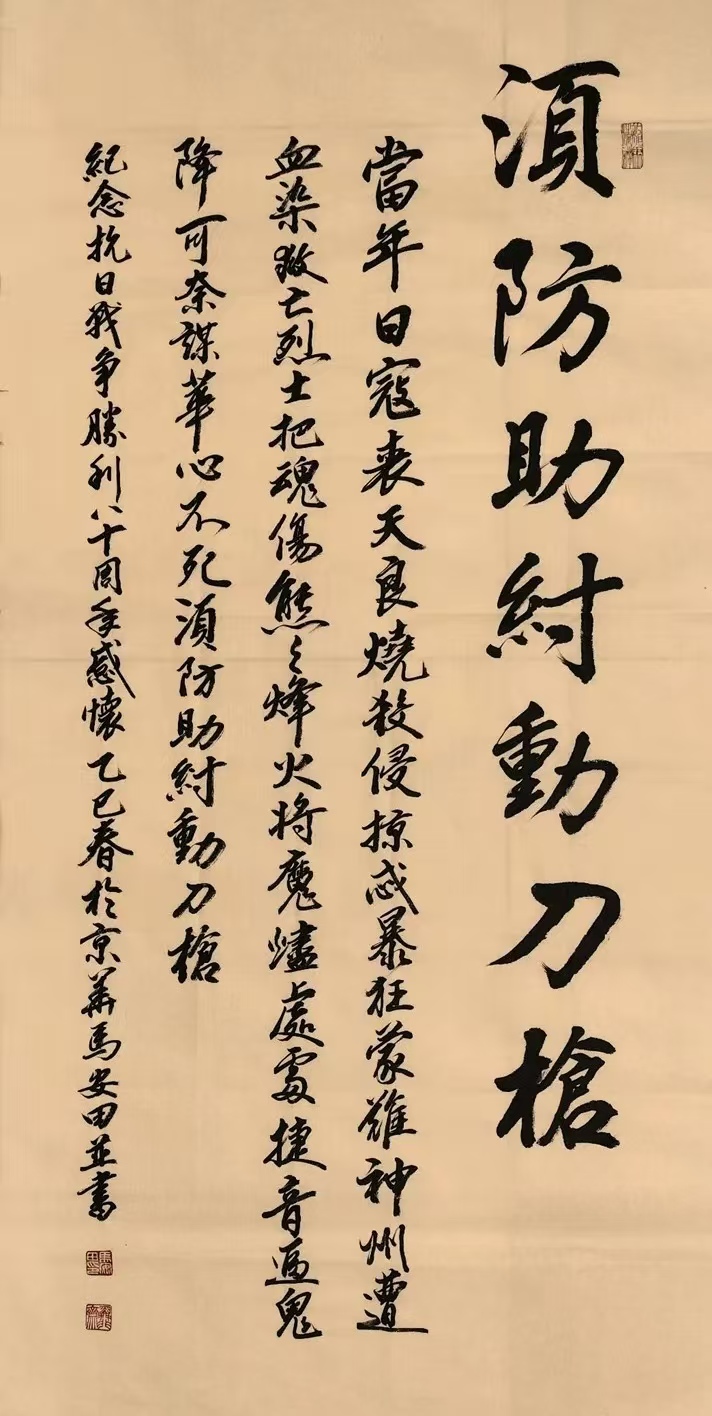 須防助紂動刀槍
當年日寇喪天良燒殺侵掠忒暴狂蒙難神州遭
血染救亡烈士把魂傷熊々烽火将魔燼處處捷音逼鬼
降可奈謀華心不死須防助紂動刀槍
紀念抗日戰争勝利八十周年感懷乙巳春於京華馬安田並書